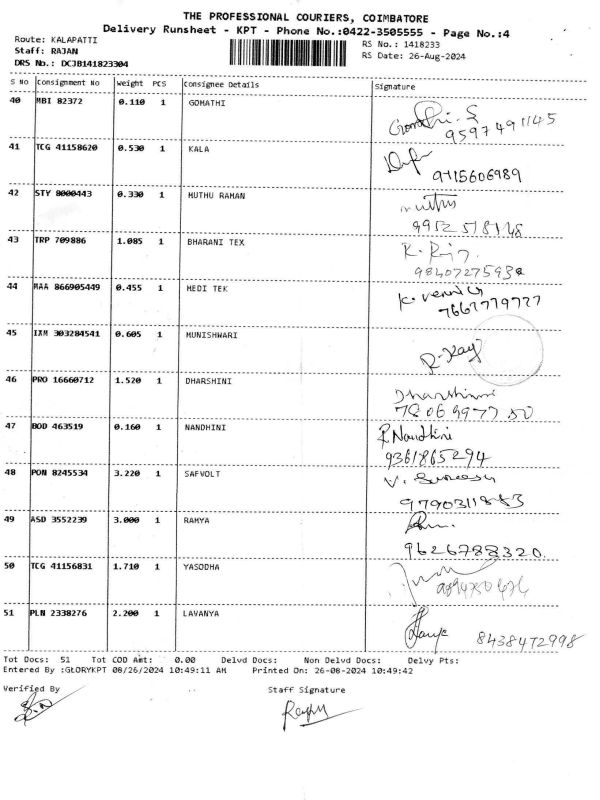 THE PROFESSIONAL COURIERS, COIMBATORE
Delivery Runsheet - KPT - Phone No.:0422-3505555 - Page No.:4
Route: KALAPATTI RS No.: 1418233
Staff: RAJAN RS Date: 26-Aug-2024
DRS No.: DCJB141823304
S No Consignment No Weight PCS Consignee Details Signature
40 MBI 82372 0.110 1 GOMATHI
Gomathi. S
9597491145
41 TCG 41158620 0.530 1 KALA
9715606989
42 STY 8000443 0.330 1 MUTHU RAMAN
muthu
43 TRP 709886 1.085 1 BHARANI TEX
44 MAA 866905449 0.455 1 MEDI TEK
45 IXM 303284541 0.605 1 MUNISHWARI
46 PRO 16660712 1.520 1 DHARSHINI
Dharshini
47 BOD 463519 0.160 1 NANDHINI
Nandhini
9361865294
48 PON 8245534 3.220 1 SAFVOLT
49 ASD 3552239 3.000 1 RAMYA
9626788320
50 TCG 41156831 1.710 1 YASODHA
51 PLN 2338276 2.200 1 LAVANYA
8438472998
Tot Docs: 51 Tot COD Amt: 0.00 Delvd Docs: Non Delvd Docs: Delvy Pts:
Entered By :GLORYKPT 08/26/2024 10:49:11 AM Printed On: 26-08-2024 10:49:42
Verified By Staff Signature